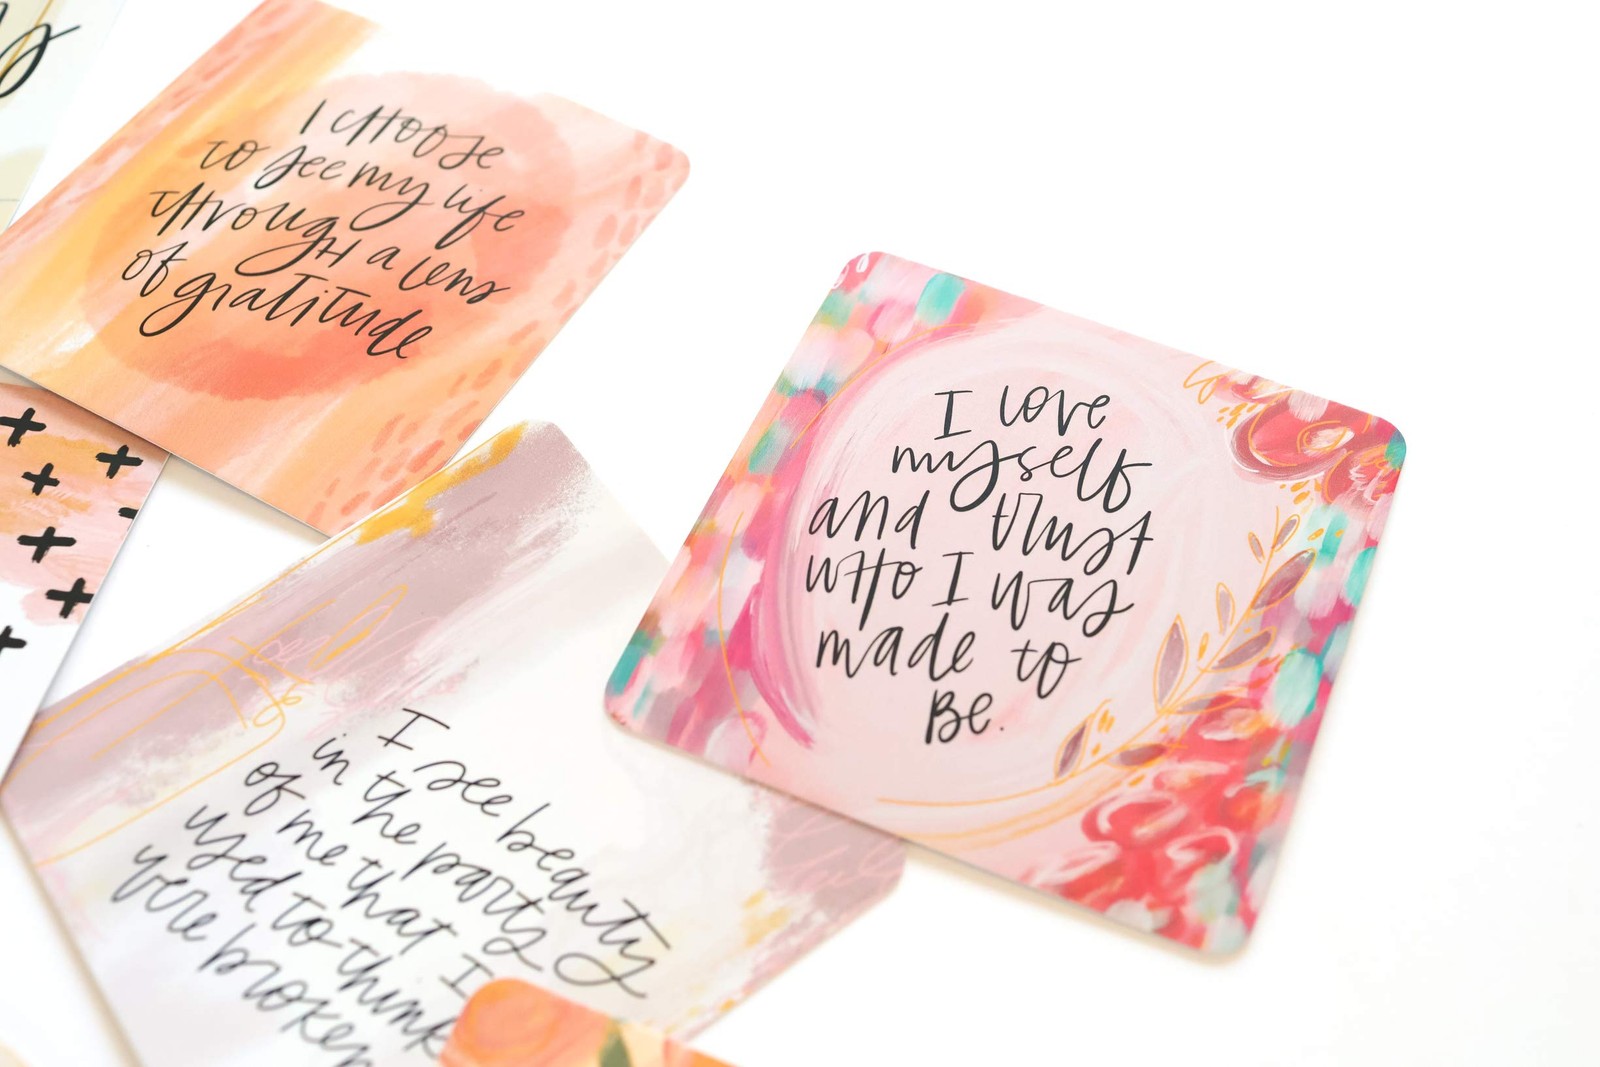 I CHOOSE
TO see my life
THrougH a lens
of gratitude
I love
myself
and trust
wHo I was
made to
Be.
I see beauty
in the parts
of me that I
used to think
were broken